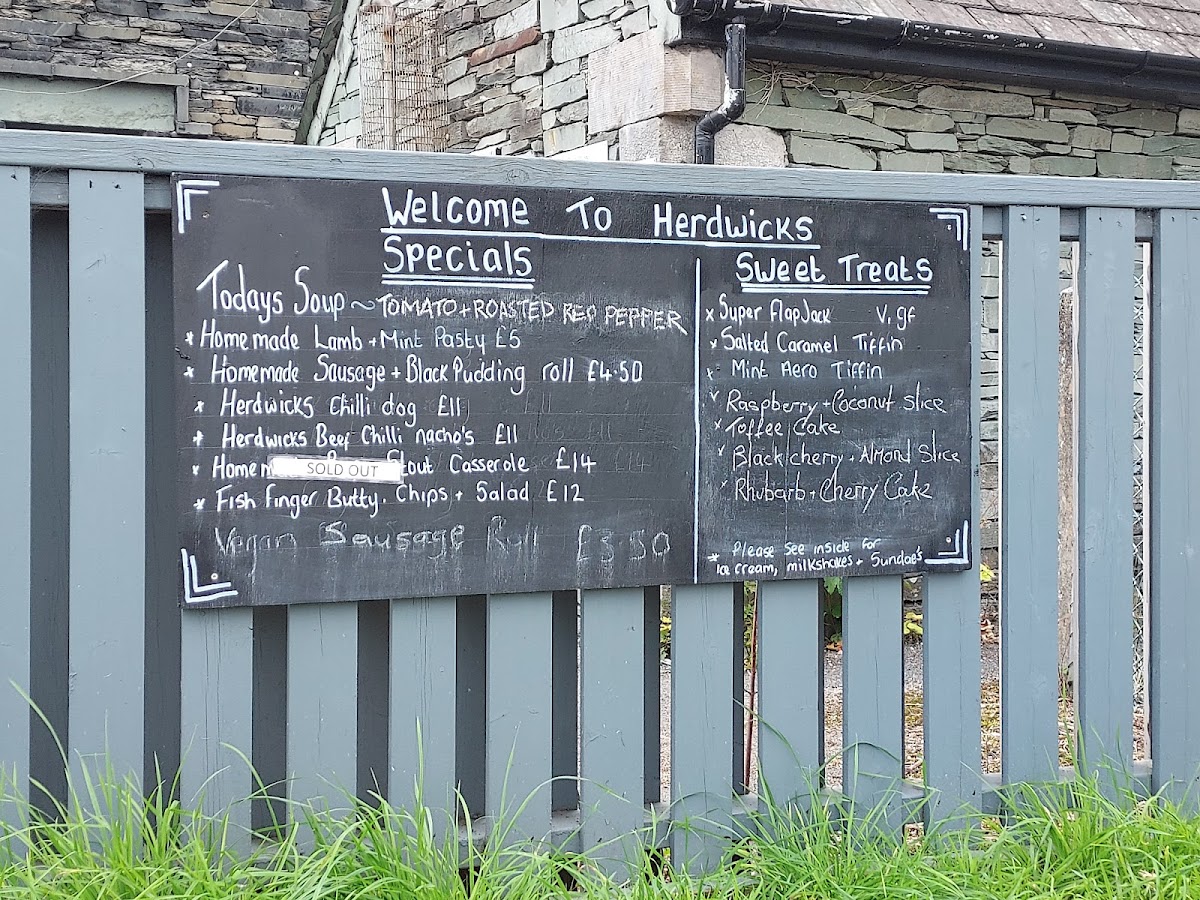 Welcome To Herdwicks
Specials
Todays Soup ~ TOMATO + ROASTED RED PEPPER
* Homemade Lamb + Mint Pasty £5
* Homemade Sausage + Black Pudding roll £4.50
* Herdwicks Chilli dog £11
* Herdwicks Beef Chilli nacho's £11
* Homem SOLD OUT Stout Casserole £14
* Fish Finger Butty, Chips + Salad £12
Vegan Sausage Roll £3.50
Sweet Treats
* Super FlapJack V, gf
* Salted Caramel Tiffin
* Mint Aero Tiffin
* Raspberry + Coconut slice
* Toffee Cake
* Black cherry + Almond Slice
* Rhubarb + Cherry Cake
* Please See inside for
ice cream, milkshakes + Sundae's